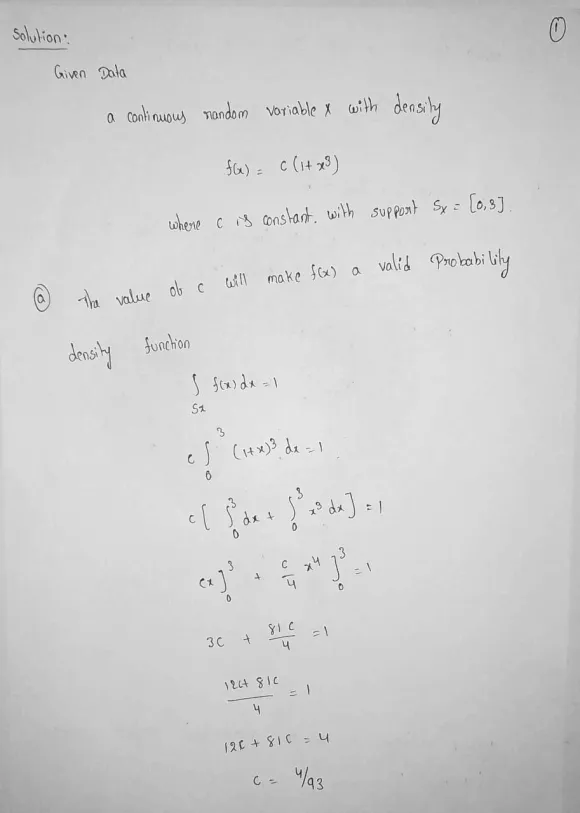 ①
Solution:
Given Data
a continuous random variable x with density
f(x) = c(1+x³)
where c is constant. with support Sx = [0,3].
ⓐ The value ob c will make f(x) a valid Probability
density function
∫Sx f(x) dx = 1
c ∫₀³ (1+x)³ dx = 1
c [ ∫₀³ dx + ∫₀³ x³ dx ] = 1
cx]₀³ + c/4 x⁴ ]₀³ = 1
3c + 81c/4 = 1
12c+81c/4 = 1
12c + 81c = 4
c = 4/93